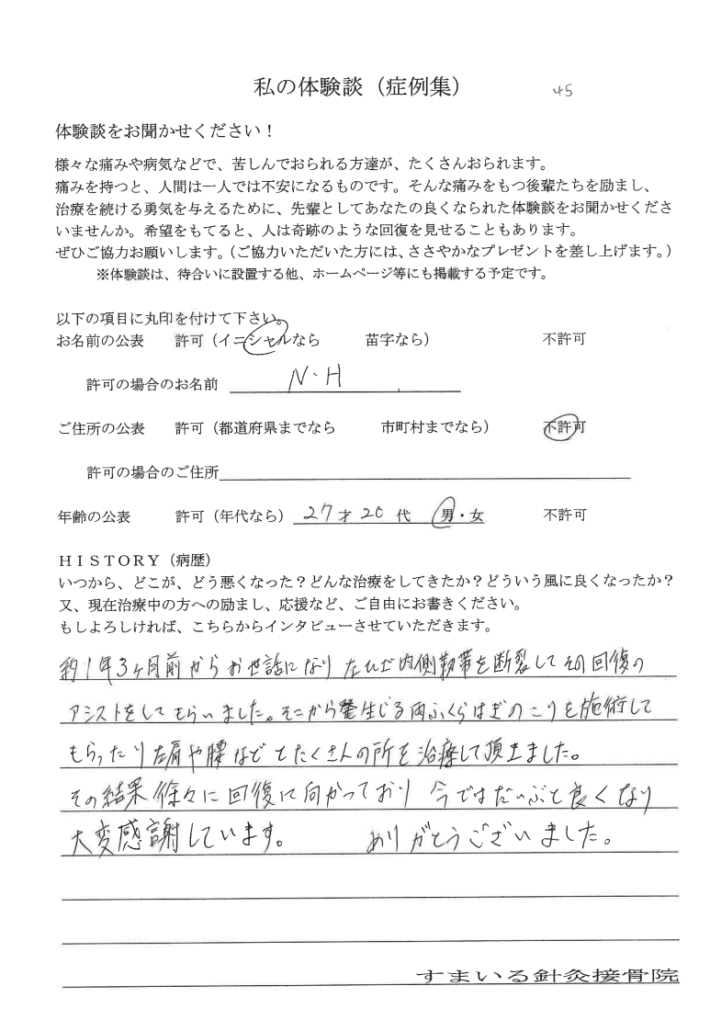 私の体験談（症例集）
45
体験談をお聞かせください！
様々な痛みや病気などで、苦しんでおられる方達が、たくさんおられます。
痛みを持つと、人間は一人では不安になるものです。そんな痛みをもつ後輩たちを励まし、
治療を続ける勇気を与えるために、先輩としてあなたの良くなられた体験談をお聞かせくださ
いませんか。希望をもてると、人は奇跡のような回復を見せることもあります。
ぜひご協力お願いします。（ご協力いただいた方には、ささやかなプレゼントを差し上げます。）
※体験談は、待合いに設置する他、ホームページ等にも掲載する予定です。
以下の項目に丸印を付けて下さい。
お名前の公表　許可（イニシャルなら　苗字なら）　不許可
許可の場合のお名前　N・H
ご住所の公表　許可（都道府県までなら　市町村までなら）　不許可
許可の場合のご住所
年齢の公表　許可（年代なら）　27才 20 代　男・女　不許可
ＨＩＳＴＯＲＹ（病歴）
いつから、どこが、どう悪くなった？どんな治療をしてきたか？どういう風に良くなったか？
又、現在治療中の方への励まし、応援など、ご自由にお書きください。
もしよろしければ、こちらからインタビューさせていただきます。
約1年3ヶ月前からお世話になり左ひざ内側靭帯を断裂してその回復の
アシストをしてもらいました。そこから生じる両ふくらはぎのこりを施術して
もらったり左肩や腰などとたくさんの所を治療して頂きました。
その結果徐々に回復に向かっており今ではだいぶと良くなり
大変感謝しています。　ありがとうございました。
すまいる針灸接骨院